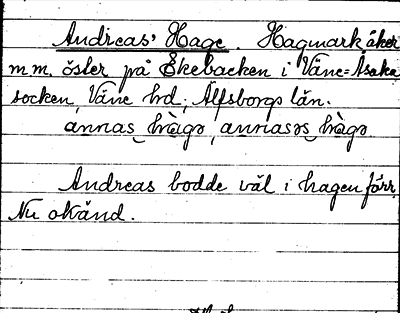 Andreas' Hage. Hagmark, åker
m.m. öster på Ekebacken i Väne=Åsaka
socken, Väne hd, Älfsborgs län.
annas hàgə, annasəs hàgə
Andreas bodde väl i hagen förr.
Nu okänd.